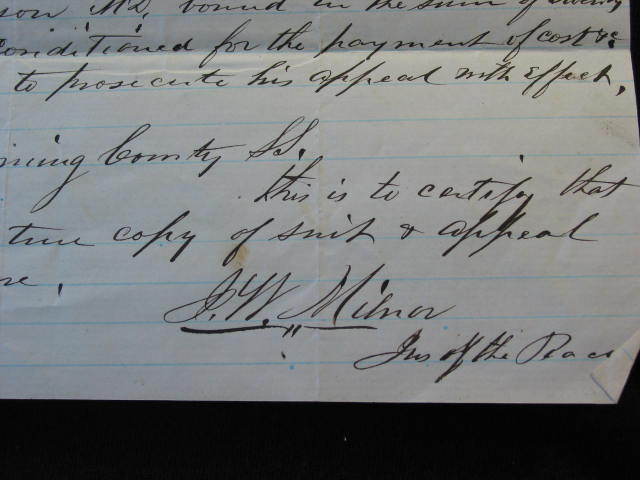 son MD, bound in the sum of twenty
Conditioned for the payment of cost &c
to prosecute his appeal with effect,
ning County SS.
this is to certify that
true copy of suit & appeal
re.
J. W. Milnor
Jus of the Peace